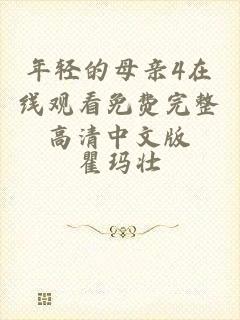 年轻的母亲4在
线观看免费完整
高清中文版
瞿玛壮